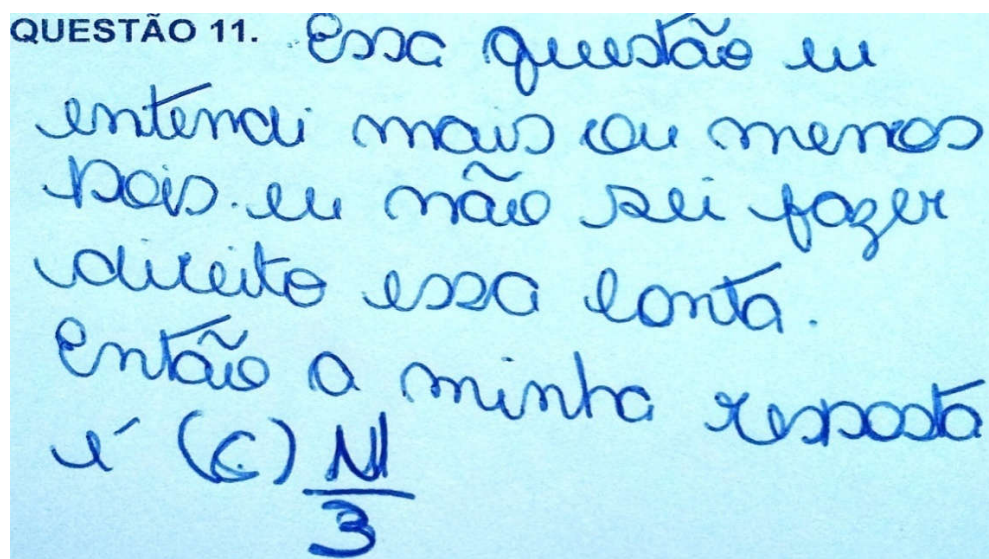 QUESTÃO 11. Essa questão eu
entendi mais ou menos
pois. eu não sei fazer
direito essa conta.
Então a minha resposta
é (C) N
3